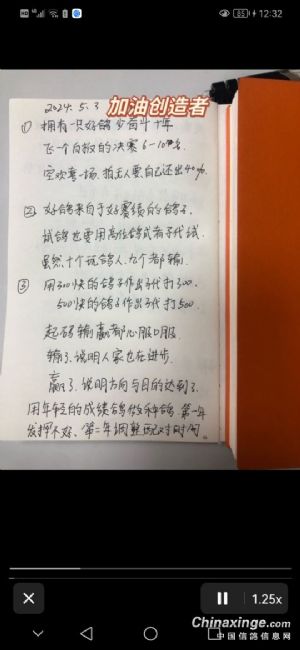 12:32
2024. 5. 3
加油创造者
① 拥有一只好鸽少奋斗十年
飞一个白板的决赛6-10名
空欢喜一场. 拍主人要自己还出40%.
② 好鸽来自于好赛绩的鸽子.
试鸽也要用高位鸽或者子代试.
虽然十个玩鸽人.九个都输.
③ 用300块的鸽子作出子代打300.
500块的鸽子作出子代打500.
起码输赢都心服口服.
输了.说明人家也在进步.
赢了.说明方向与目的达到了.
用年轻的成绩鸽做种鸽.第一年
发挥不好、第二年调整配对时间
1.25x
Chinaxinge.com
中国信鸽信息网